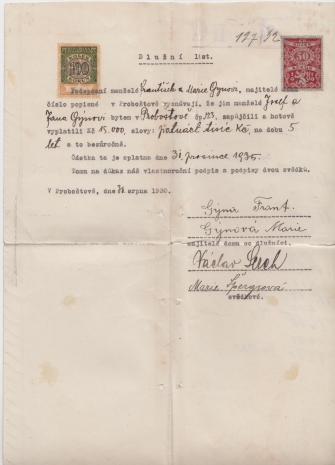 127/32
Dlužní list.
KOLEK
100
50
Podepsaní manželé František a Marie Gýnovi, majitelé
číslo popisné v Proboštově vyznávají, že jim manželé Josef a
Jana Gýnovi bytem v Proboštově čp. 123, zapůjčili a hotově
vyplatili Kč 15.000, slovy: patnáct tisíc Kč, na dobu 5
let a to bezúročně.
Částka ta je splatna dne 31. prosince 1935.
Toho na důkaz náš vlastnoruční podpis a podpisy dvou svědků.
V Proboštově, dne 31 srpna 1930.
Frant.
Gýnová Marie
majitelé domu co dlužníci.
Václav
Marie
svědkové.